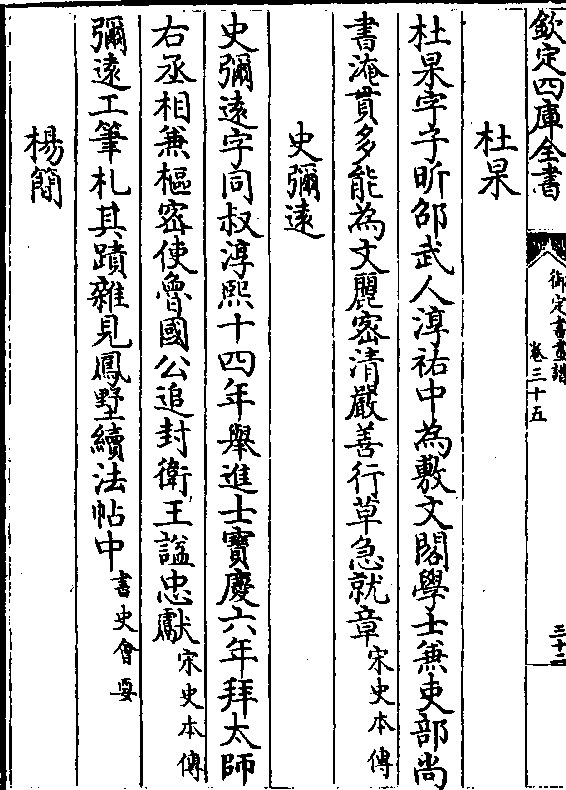 欽定四庫全書
御定書畫譜
卷三十五
三十二
杜杲
杜杲字子昕邵武人淳祐中為敷文閣學士兼吏部尚
書淹貫多能為文麗密清嚴善行草急就章宋史本傳
史彌遠
史彌遠字同叔淳熙十四年舉進士寶慶六年拜太師
右丞相兼樞密使魯國公追封衛王謚忠獻宋史本傳
彌遠工筆札其蹟雜見鳳墅續法帖中書史會要
楊簡